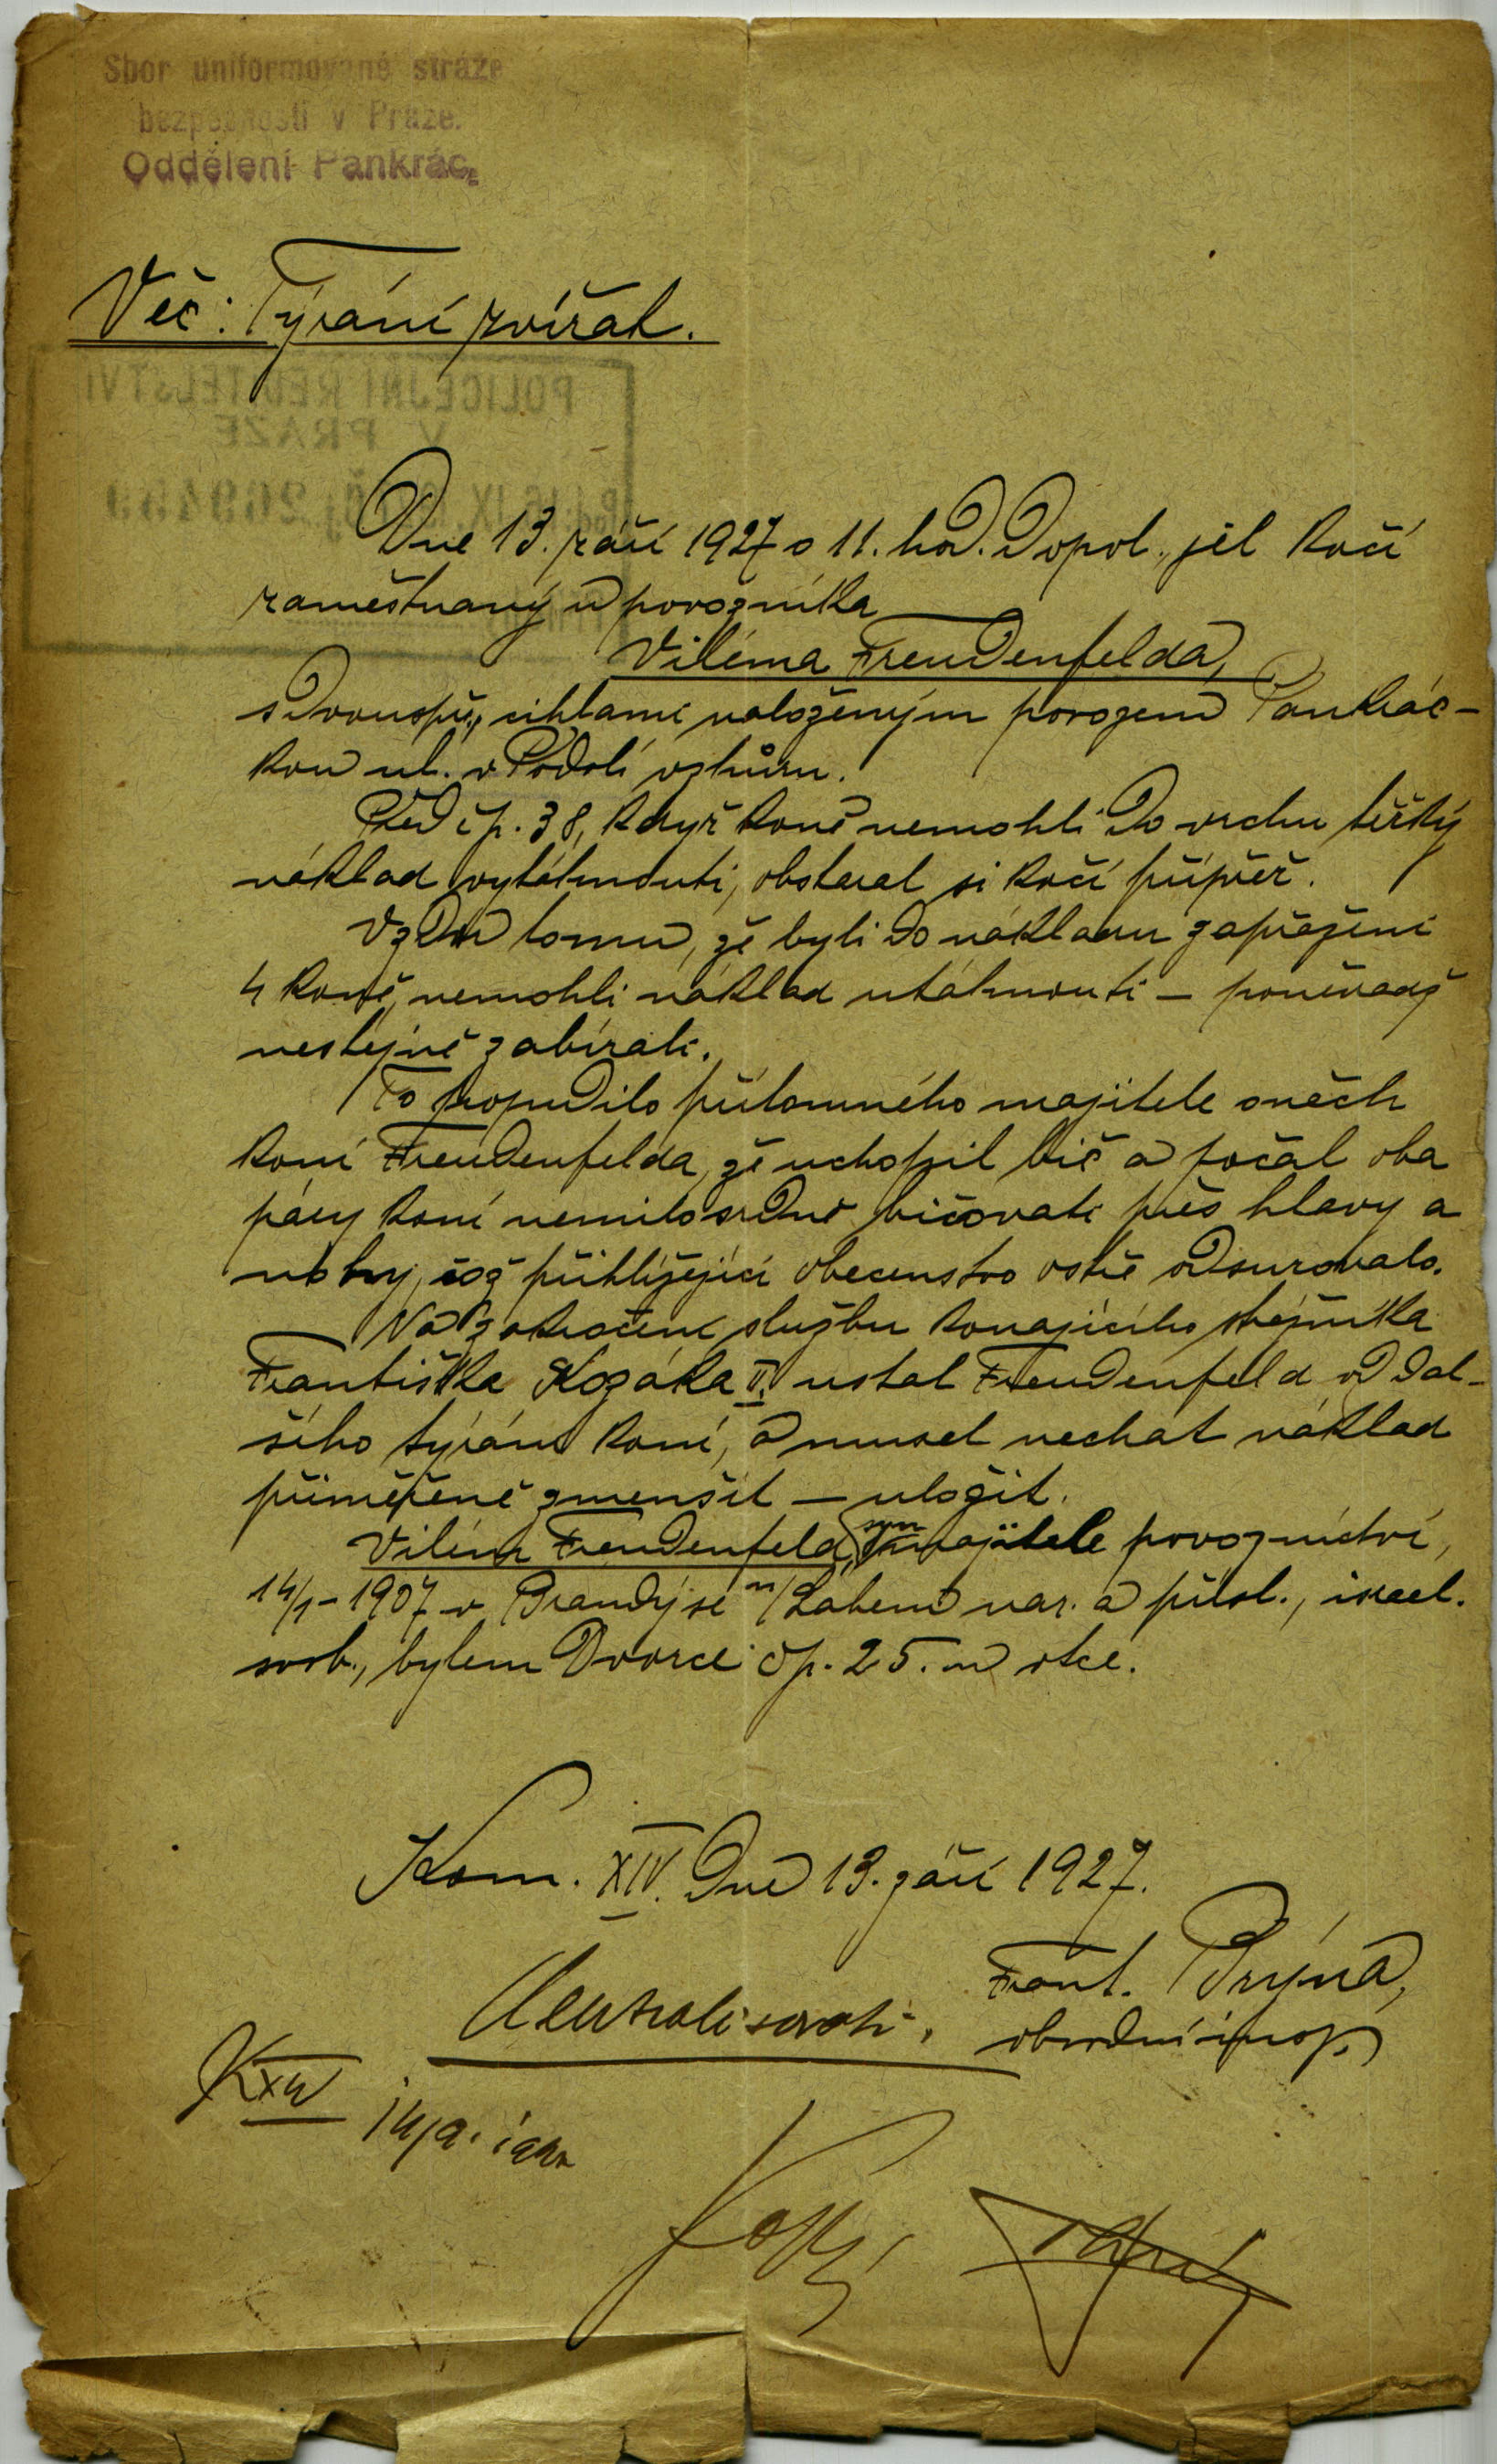 Sbor uniformované stráže
bezpečnosti v Praze.
Oddělení Pankrác.
Věc: Týrání zvířat.
POLICEJNÍ ŘEDITELSTVÍ
V PRAZE
Dne 13. září 1927 o 11. hod. dopol. jel kočí
zaměstnaný u povozníka
Viléma Freudenfelda,
s dvouspř., cihlami naloženým povozem Pankrác-
kou ul. v Podolí vzhůru.
Před čp. 38, když koně nemohli do vrchu těžký
náklad vytáhnouti, obstaral si kočí přípřež.
Vzdor tomu, že byli do nákladu zapřaženi
4 koně, nemohli náklad utáhnouti – poněvadž
nestejně zabírali.
To popudilo přítomného majitele oněch
koní Freudenfelda, že uchopil bič a počal oba
páry koní nemilosrdně bičovati přes hlavy a
nohy, což přihlížející obecenstvo ostře odsuzovalo.
Na zakročení službu konajícího strážníka
Františka Kozáka II. ustal Freudenfeld od dal-
šího týrání koní, a musel nechat náklad
přiměřeně zmenšit – uložit.
Vilém Freudenfeld, syn majitele povoznictví,
14/1 – 1907 v Brandýse n/Labem nar. a přísl., israel.
svob., bytem Dvorce čp. 25. u otce.
Kom. XIV. dne 13. září 1927.
Frant. Brýna,
obvodní insp.
K XIV